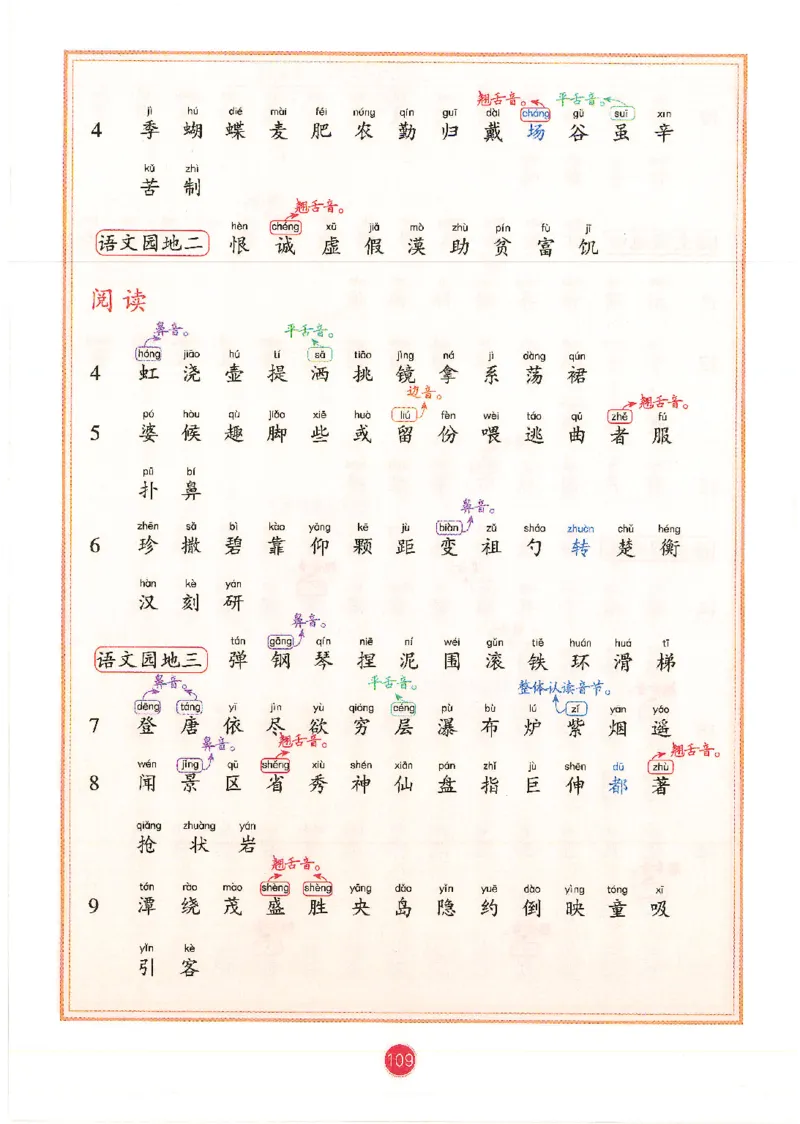 翘舌音。 平舌音。
jì hú dié mài féi nóng qín guī dài cháng gǔ suī xīn
4 季 蝴 蝶 麦 肥 农 勤 归 戴 场 谷 虽 辛
kǔ zhì
苦 制
翘舌音。
hèn chéng xū jiǎ mò zhù pín fù jī
语文园地二 恨 诚 虚 假 漠 助 贫 富 饥
阅读
鼻音。 平舌音。
hóng jiāo hú tí sǎ tiāo jìng ná jì dàng qún
4 虹 浇 壶 提 洒 挑 镜 拿 系 荡 裙
边音。 翘舌音。
pó hòu qù jiǎo xiē huò liú fèn wèi táo qǔ zhě fú
5 婆 候 趣 脚 些 或 留 份 喂 逃 曲 者 服
pū bí
扑 鼻
鼻音。
zhēn sǎ bì kào yǎng kē jù biàn zǔ sháo zhuàn chǔ héng
6 珍 撒 碧 靠 仰 颗 距 变 祖 勺 转 楚 衡
hàn kè yán
汉 刻 研
鼻音。
tán gāng qín niē ní wéi gǔn tiě huán huá tī
语文园地三 弹 钢 琴 捏 泥 围 滚 铁 环 滑 梯
鼻音。 平舌音。 整体认读音节。
dēng táng yī jìn yù qióng céng pù bù lú zǐ yān yáo
7 登 唐 依 尽 欲 穷 层 瀑 布 炉 紫 烟 遥
鼻音。 翘舌音。 翘舌音。
wén jǐng qū shěng xiù shén xiān pán zhǐ jù shēn dū zhù
8 闻 景 区 省 秀 神 仙 盘 指 巨 伸 都 著
qiāng zhuàng yán
抢 状 岩
翘舌音。
tán rào mào shèng shèng yāng dǎo yǐn yuē dào yìng tóng xī
9 潭 绕 茂 盛 胜 央 岛 隐 约 倒 映 童 吸
yǐn kè
引 客
109